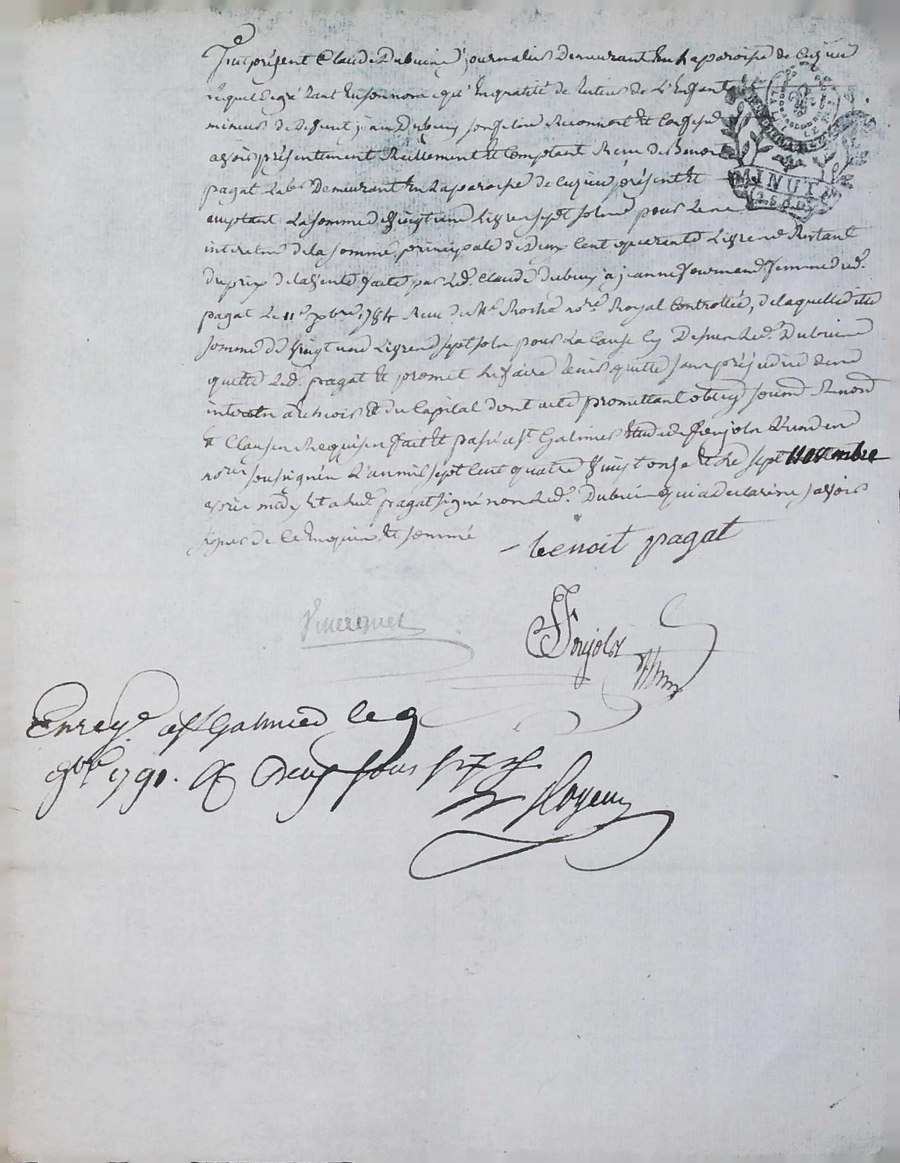 Fut présent Claude Dubuin journalier demeurant en la paroisse de Cuzieu
lequel de gré tant en son nom qu'en qualité de tuteur de L'Enfant
mineur de defunt jean Dubuy son filou Reconnoit et Confesse
avoir présentement Réellement et Comptant Reçu de Benoit
pagat Lab^r Demeurant en La paroisse de cuzieu présent et
acceptant La somme de vingt une Livres sept sols pour
interetz de la somme principale de Deux Cent quarante Livres Restant
du prix de la vente faite par Led. Claude dubuy a jeanne fournand femme dud.
pagat Le 11 xbre 1784 Reçu de M^e Roche no^re Royal Controllée, de laquelle dite
somme de vingt une Livres sept sols pour La Cause Cy Dessus Led. Dubuin
quitte Led. pagat et promet Le faire tenir quitte sans préjudice des
interetz à échoir et du Capital dont acte promettant obleig soumd Renond
et Clauses Requises fait et passé a St Galmier Etude de fonjols L'un des
no^res soussignés L'an mil sept Cent quatre vingt onze et Le sept novembre
avant midy et a Led. pagat signé non Led. Dubuin qui a declaré ne savoir
signer de ce Enquis et sommé
benoit pagat
MINUT
Fonjols
Enreg^é a St Galmier le 9
9bre 1791. R deux sous